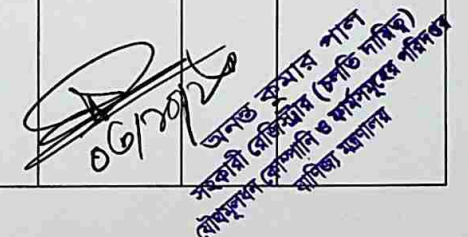 ০৬/১০/২০
অনন্ত কুমার পাল
সহকারী রেজিস্ট্রার (চলতি দায়িত্ব)
যৌথমূলধন কোম্পানি ও ফার্মসমূহের পরিদপ্তর
বাণিজ্য মন্ত্রণালয়